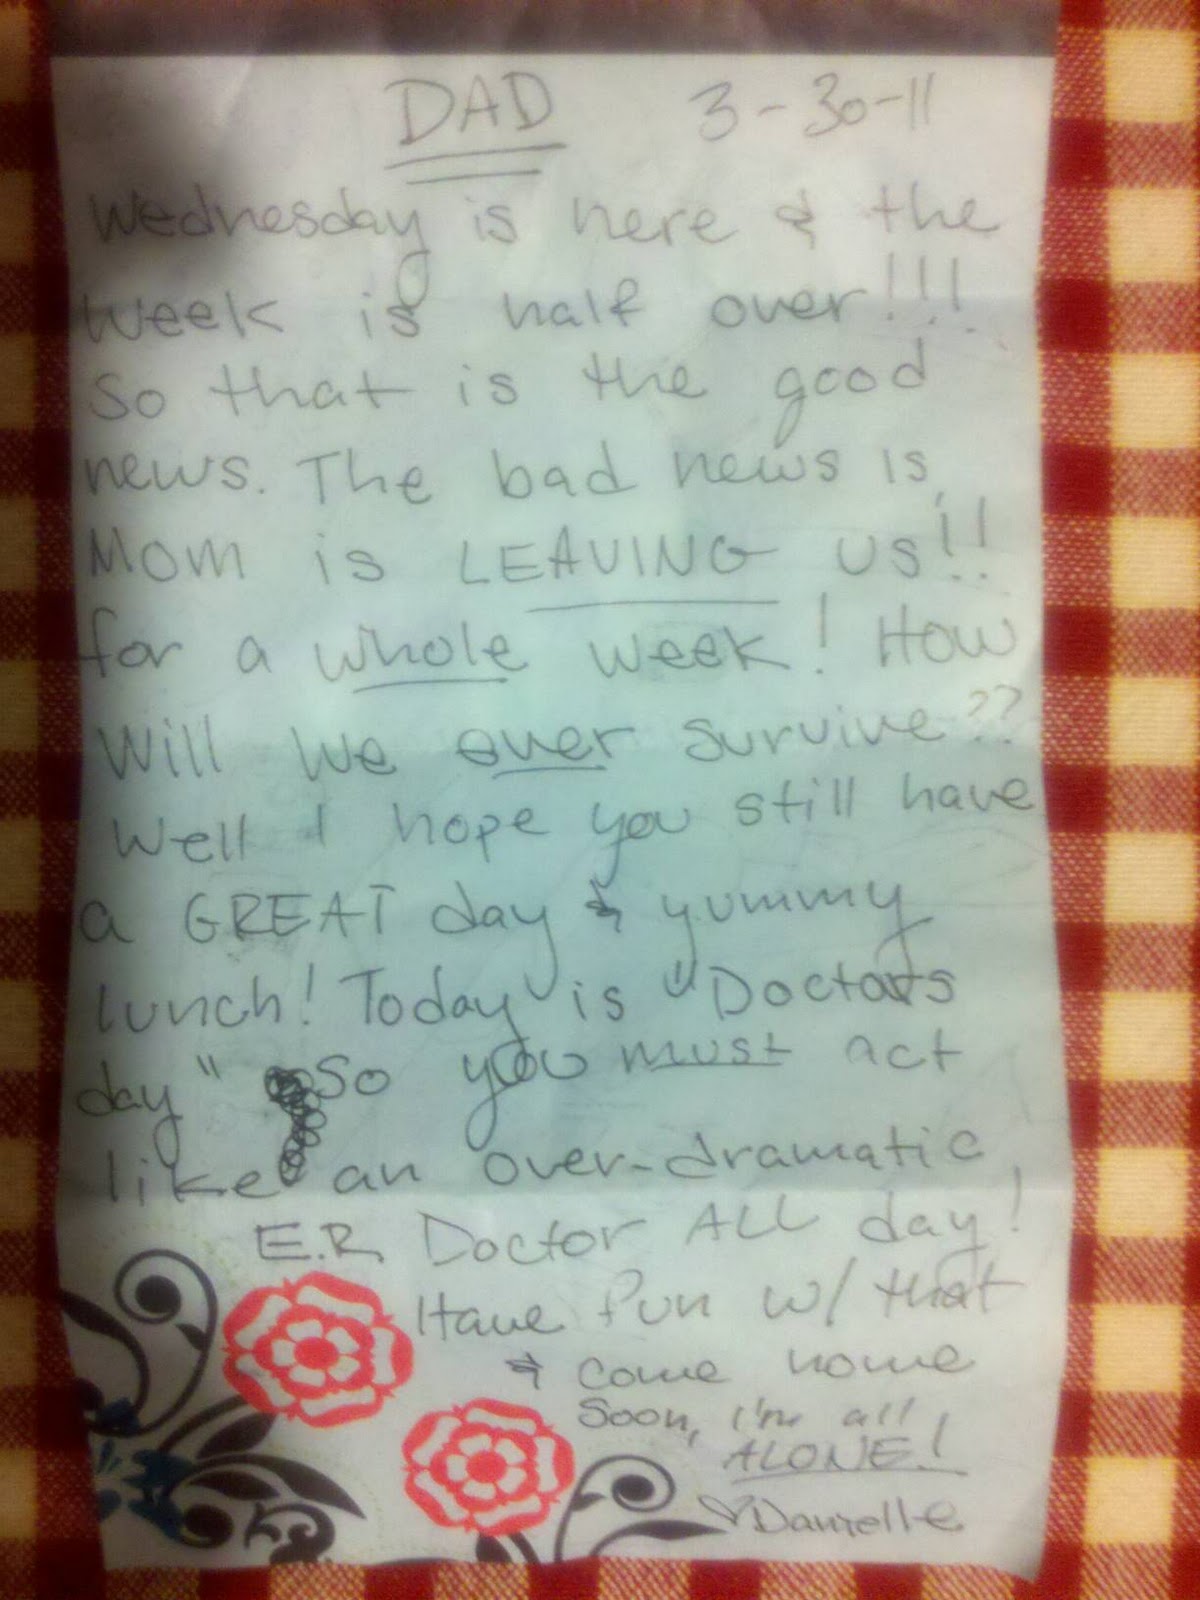 DAD 3-30-11
Wednesday is here & the
week is half over!!!
So that is the good
news. The bad news is,
Mom is LEAVING us!!
for a whole week! How
Will we ever survive??
Well I hope you still have
a GREAT day & yummy
lunch! Today is "Doctors
day" So you must act
like an over-dramatic
E.R. Doctor ALL day!
Have fun w/ that
& come home
soon, I'm all
ALONE!
♡Danielle